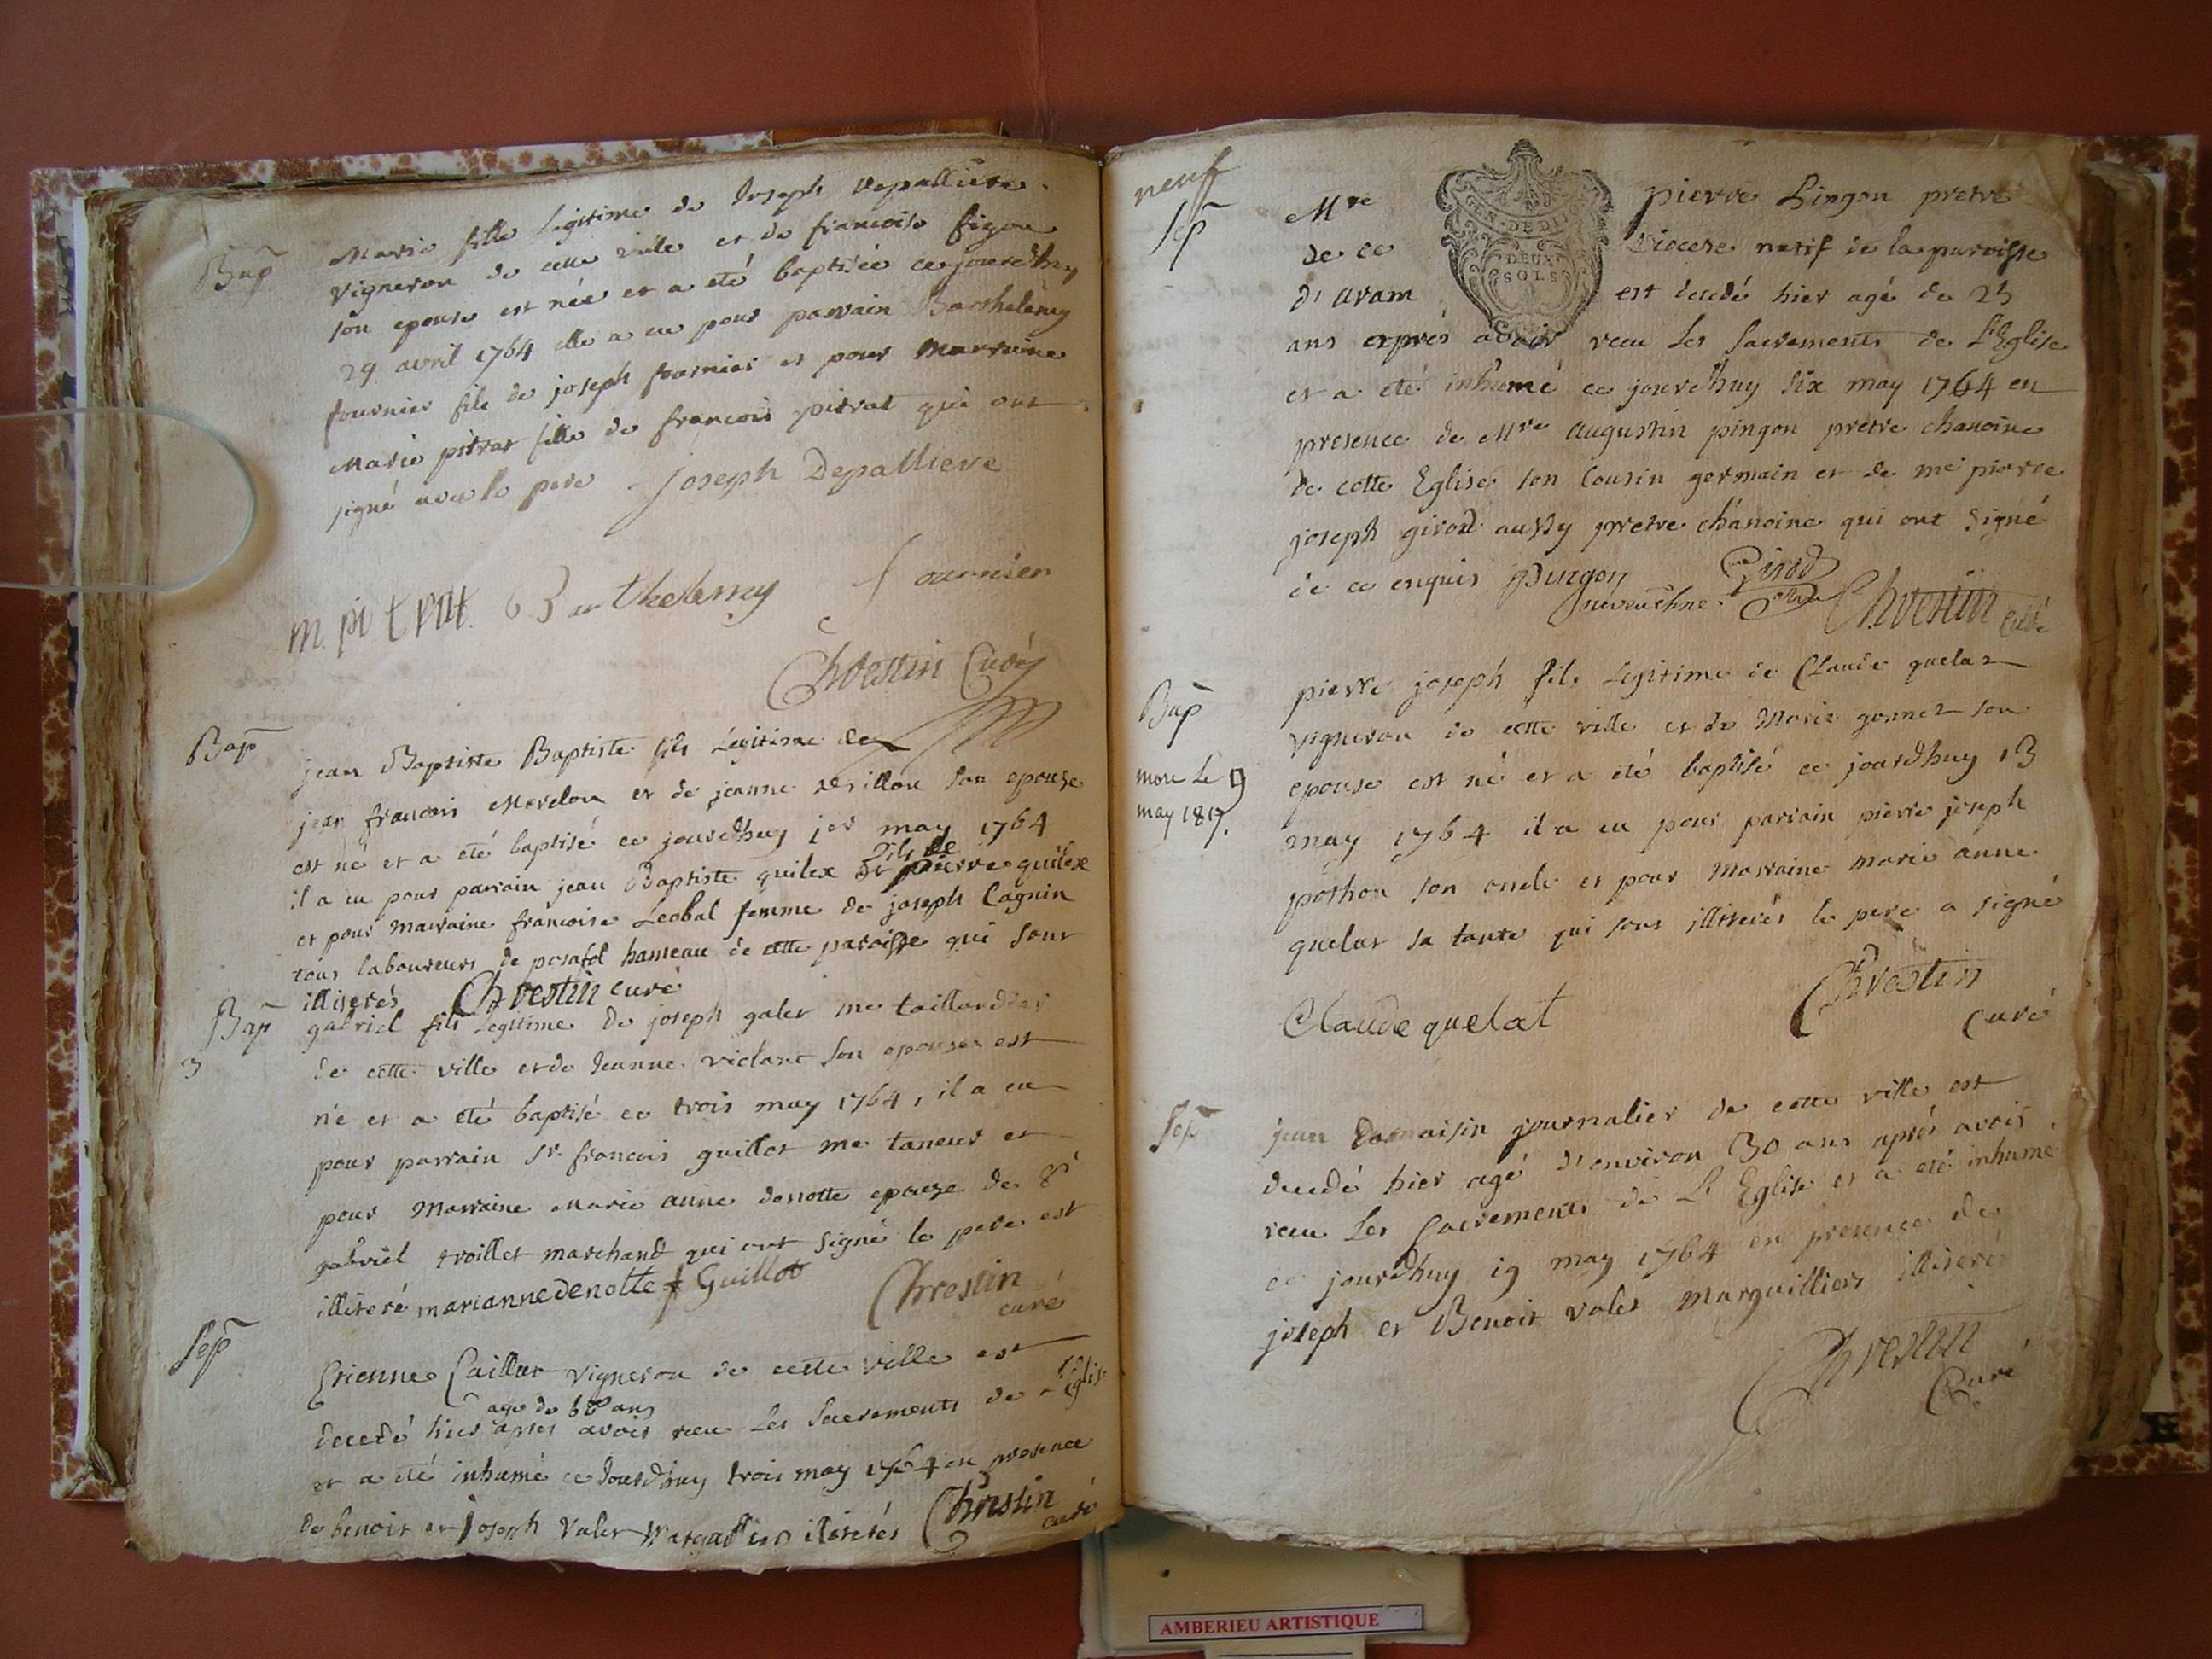 Bap
Marie fille Legitime de Joseph Depalliere
vigneron de cette ville et de francoise figon
son epouse est née et a eté baptisée ce jourdhuy
29 avril 1764 elle a eu pour parrain Barthelemy
fournier fils de joseph fournier et pour marraine
Marie pitrat fille de francois pitrat qui ont
signé avec le pere Joseph Depalliere
m. pitrat Barthelemy fournier
Chrestin Curé
Bap
jean Baptiste Baptiste fils Legitime de
jean francois Merdon et de jeanne son epouse
est né et a eté baptisé ce jourdhuy jer may 1764
fils de
il a eu pour parrain jean Baptiste quilex pierre quilex
et pour marraine francoise Leobal femme de joseph Cagnin
tous laboureurs de posafol hameau de cette paroisse qui sont
illiterés Chrestin curé
Bap
3
gabriel fils Legitime de joseph galet me taillandier
de cette ville et de Jeanne violant son epouse est
né et a eté baptisé ce trois may 1764, il a eu
pour parrain sr. francois guillot me taneur et
pour Marraine Marie anne denotte epouze de sr
gabriël troillet marchand qui ont signé le pere est
illiteré marianne denotte f Guillot Chrestin
curé
Sep
Etienne Caillat vigneron de cette ville est
agé de ans
decedé hier apres avoir receu Les Sacrements de L'Eglise
et a eté inhumé ce Jourdhuy trois may 1764 en presence
de benoit et Joseph Valet Marguilliers iliterés Chrestin
curé
neuf
Sep
GEN. DE DIJON
DEUX
SOLS
Mre pierre Pingon pretre
de ce Diocese natif de la paroisse
d'aram est decedé hier agé de 25
ans exprés avoir receu Les Sacrements de L'Eglise
et a eté inhumé ce jourdhuy six may 1764 en
presence de Mre augustin pingon pretre chanoine
de cette Eglise son Cousin germain et de me pierre
joseph girod aussy pretre chanoine qui ont signé
de ce enquis Pingon Girod
Chrestin Curé
Bap
mort Le 9
may 1817.
pierre joseph fils Legitime de Claude quelat
vigneron de cette ville et de Marie gonnet son
epouse est né et a eté baptisé ce jourdhuy 13
may 1764 il a eu pour parrain pierre joseph
pothon son oncle et pour Marraine marie anne
quelat sa tante qui sont illiterés le pere a signé
Claude quelat Chrestin
curé
Sep
jean Domaisin journalier de cette ville est
decedé hier agé d'environ 30 ans aprés avoir
receu Les Sacrements de L'Eglise et a eté inhumé
ce jourdhuy 19 may 1764 en presence de
joseph et Benoit valet Marguilliers illiterés
Chrestin
Curé
AMBERIEU ARTISTIQUE